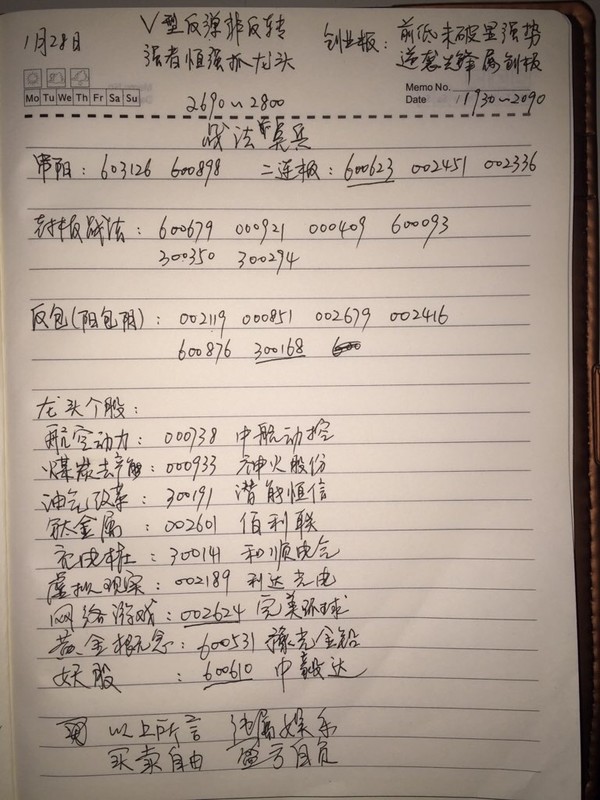 1月28日
V型反弹非反转
强者恒强抓龙头
创业板：前低未破显强势
逆袭先锋属创板
Mo Tu We Th Fr Sa Su
Memo No.
Date 1930~2090
2690~2800
战法点兵
串阳：603126 600898 二连板：600623 002451 002336
封板战法：600679 000921 000409 600093
300350 300294
反包(阳包阴)：002119 000851 002679 002416
600876 300168
龙头个股：
航空动力：000738 中航动控
煤炭去产能：000933 神火股份
油气改革：300191 潜能恒信
钛金属：002601 佰利联
充电桩：300141 和顺电气
虚拟现实：002189 利达光电
网络游戏：002624 完美环球
黄金概念：600531 豫光金铅
妖股：600610 中毅达
以上所言 纯属娱乐
买卖自由 盈亏自负